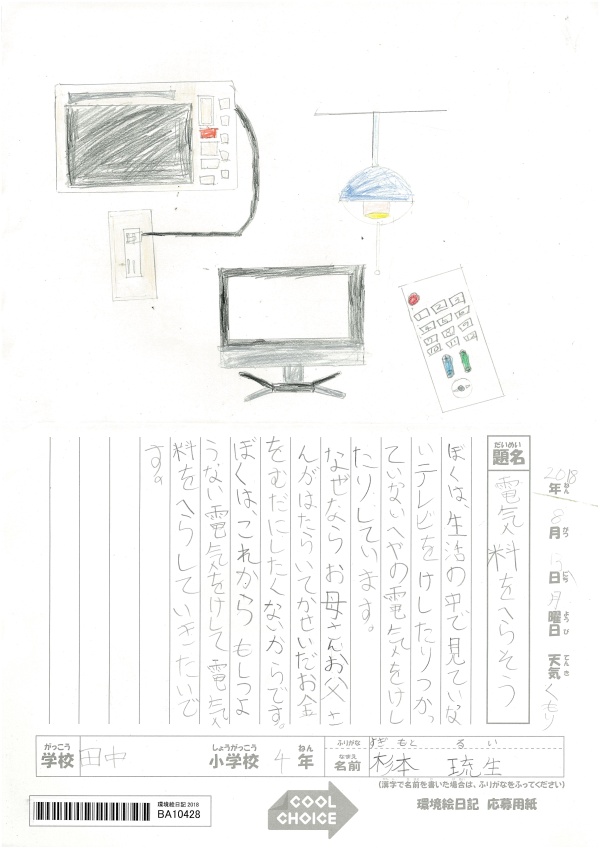 2018年 8月 13日 月曜日 天気 くもり
ねん がつ にち ようび てんき
だいめい
題名 電気料をへらそう
ぼくは、生活の中で見ていな
いテレビをけしたりつかっ
ていないへやの電気をけし
たりしています。
なぜならお母さんお父さ
んがはたらいてかせいだお金
をむだにしたくないからです。
ぼくは、これからもしつよ
うない電気をけして電気
料をへらしていきたいで
す。
がっこう しょうがっこう ねん
学校 田中 小学校 4年
ふりがな すぎもと るい
なまえ
名前 杉本 琉生
(漢字で名前を書いた場合は、ふりがなをふってください)
環境絵日記 2018
BA10428
COOL
CHOICE
環境絵日記 応募用紙